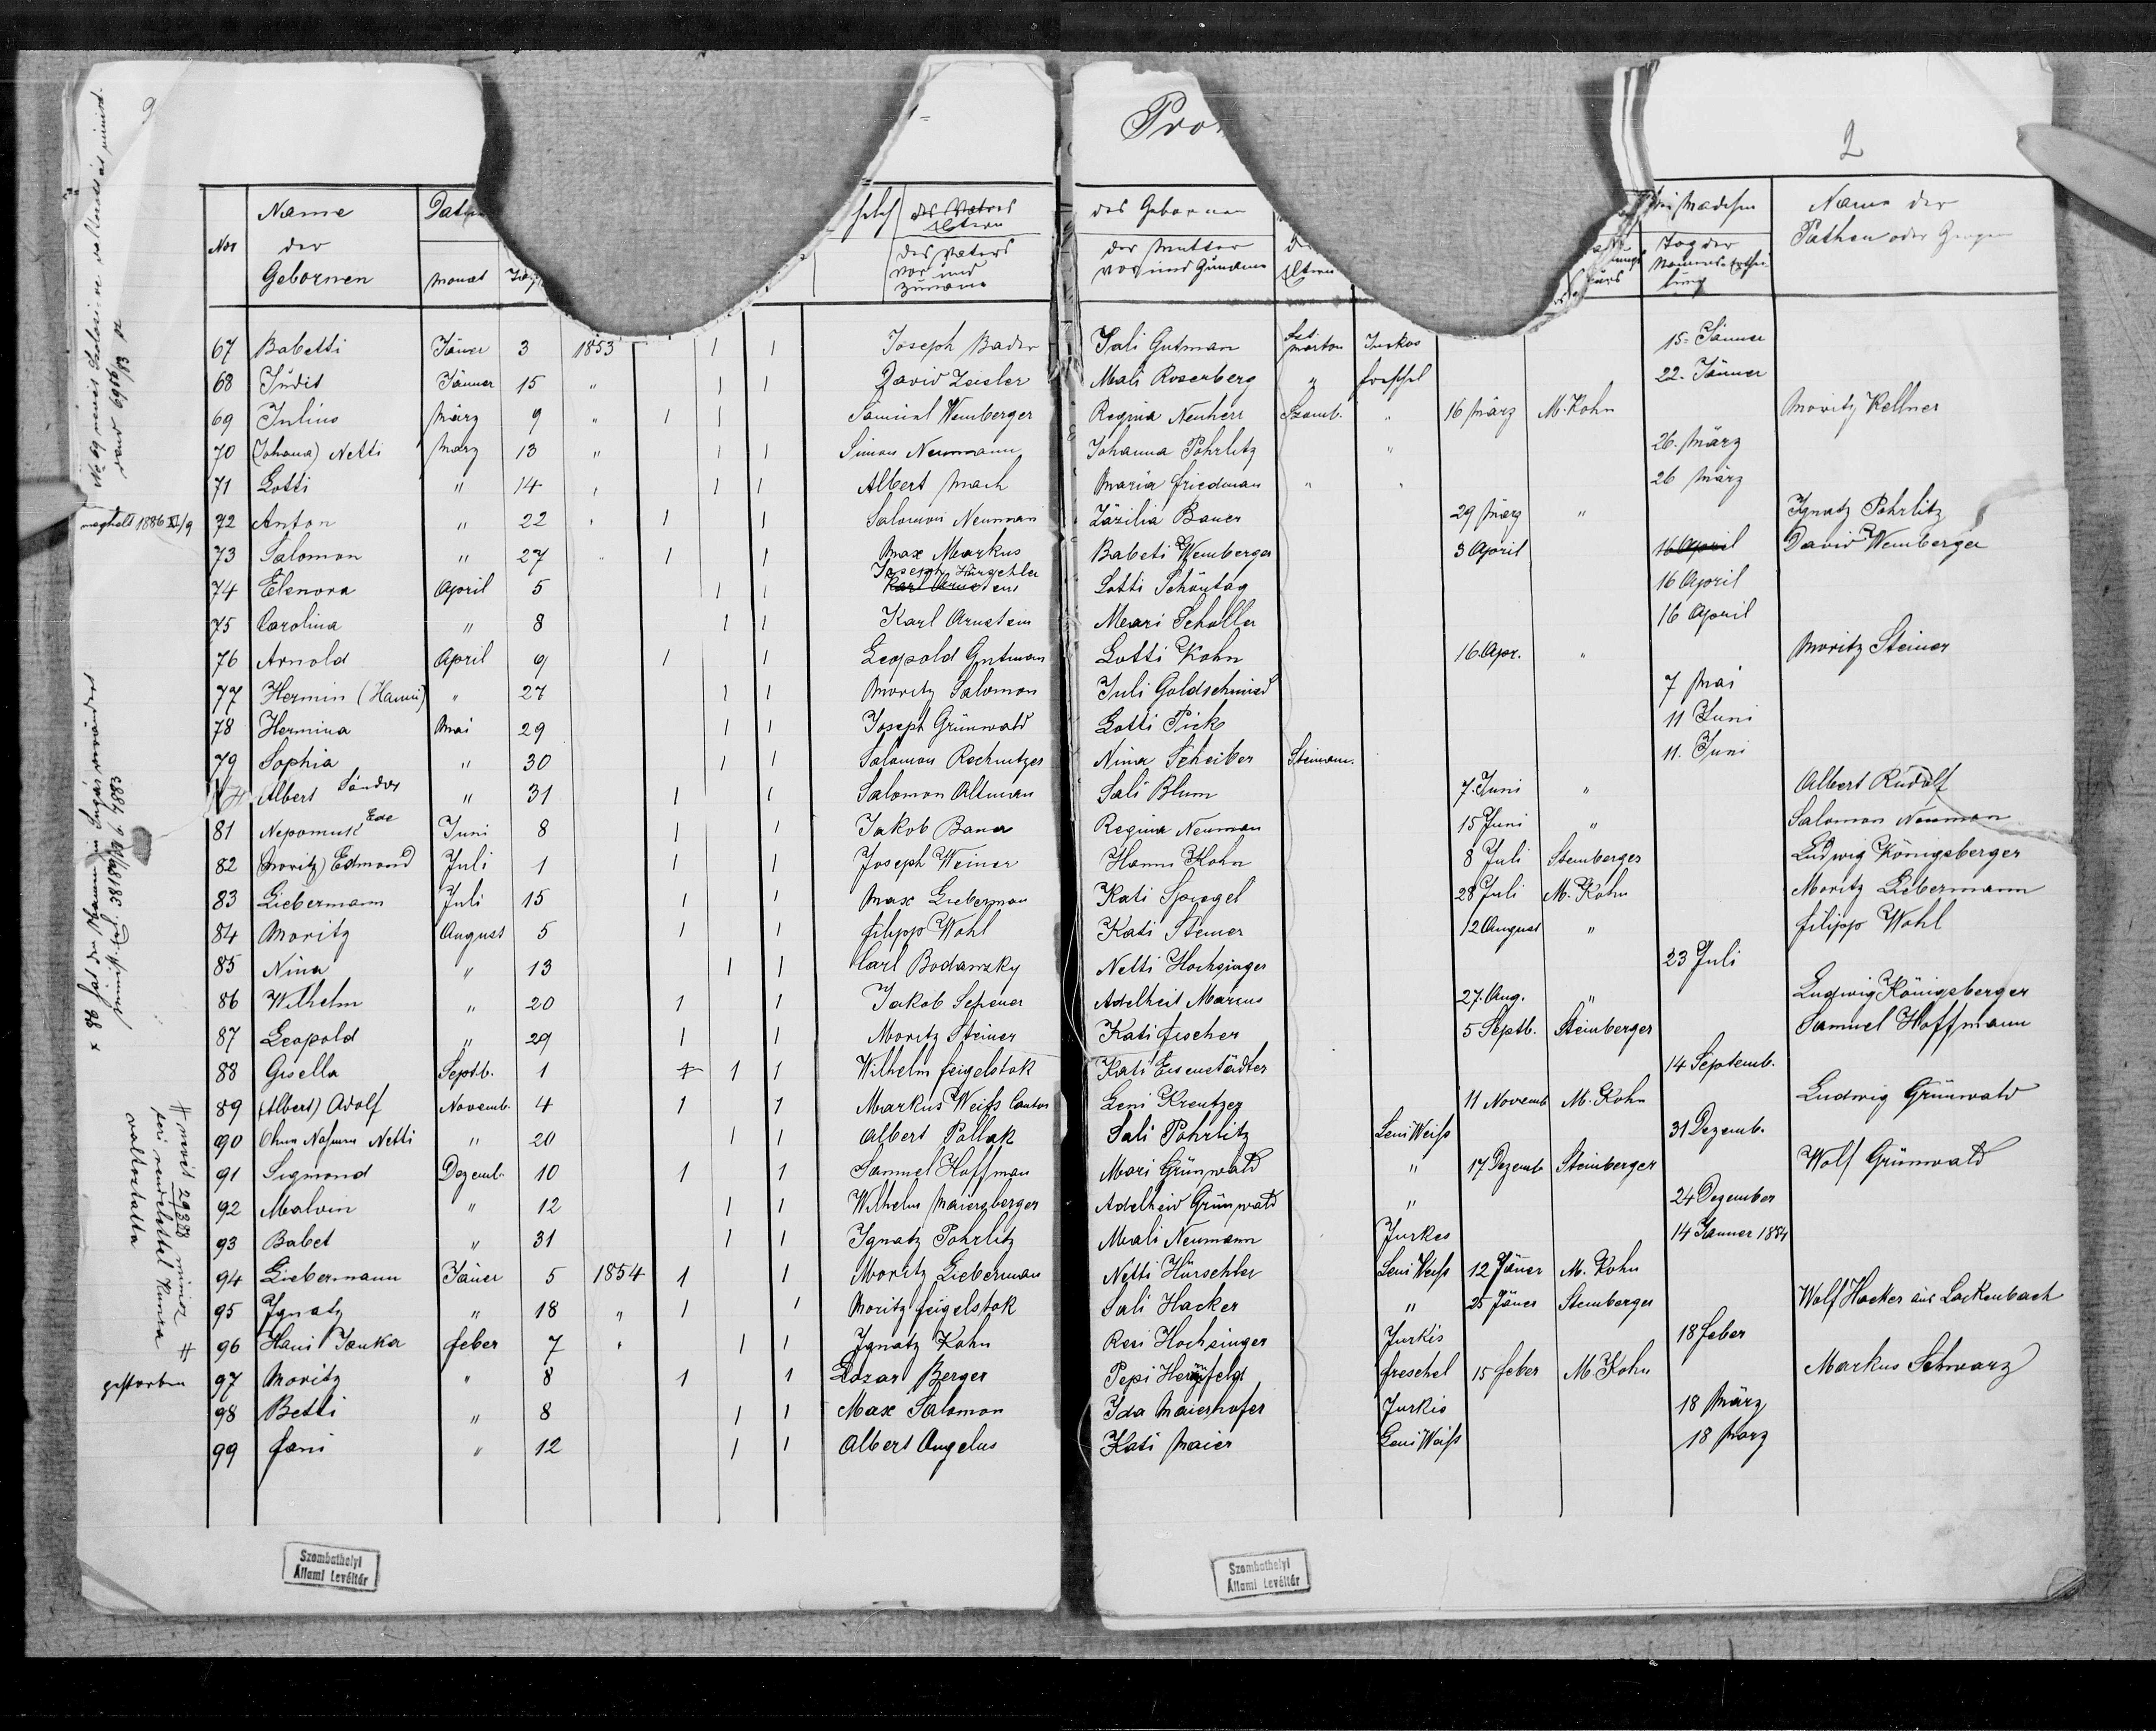 Pro
2
Nor
Name der Gebornen
Monat
des Vaters vor und Zuname
des Gebornen
der Mutter vor und Zuname
Eltern
Tag der
Name der Pathen oder
67 Babetti Jäner 3 1853 1 1 Joseph Bader Sali Gutman Szt Marton Jurkos 15. Jänner
68 Judit Jänner 15 " 1 1 David Zeisler Mali Rosenberg " Freschel 22. Jänner
69 Julius März 9 " 1 1 Samuel Wemberger Regina Neuherr Szomb. " 16 März M. Kohn Moritz Kellner
70 (Johana) Netti März 13 " 1 1 Simon Neumann Johanna Pohrlitz " 26. März
71 Lotti " 14 " 1 1 Albert Mach Maria Friedman " " 26 März
meghalt 1886 XI/9 72 Anton " 22 " 1 1 Salomon Neuman Zäzilia Bauer 29 März " Ignatz Pohrlitz
73 Salomon " 27 " 1 1 Max Markus Babeti Wemberger 3 April 16 April David Wemberger
74 Elenora April 5 1 1 Joseph Hürschler Lotti Schöntag 16 April
75 Carolina " 8 1 1 Karl Arnstein Meari Scholler 16 April
76 Arnold April 9 1 1 Leopold Gutman Lotti Kohn 16. Apr. " Moritz Steiner
77 Hermin (Hanni) " 27 1 1 Moritz Salomon Juli Goldschmied 7 Mai
78 Hermina Mai 29 1 1 Joseph Grünwald Lotti Pick 11 Juni
79 Sophia " 30 1 1 Salamon Rechnitzer Nina Scheiber Steinam. 11. Juni
Albert Sándor " 31 1 1 Salomon Altman Sali Blum 7. Juni " Albert Rudolf
81 Nepomuk Ede Juni 8 1 1 Jakob Bauer Regina Neuman 15 Juni " Salomon Neuman
82 (Moritz) Edmond Juli 1 1 1 Joseph Weiner Hanni Kohn 8 Juli Steinberger Ludwig Königsberger
83 Liebermann Juli 15 1 1 Max Lieberman Kati Spiegel 28 Juli M. Kohn Moritz Liebermann
84 Moritz August 5 1 1 Filipp Wohl Kati Steiner 12 August " Filipp Wohl
85 Nina " 13 1 1 Carl Bodanzky Netti Hochsinger 23 Juli
86 Wilhelm " 20 1 1 Jakob Scheuer Adelheit Marcus 27. Aug. " Ludwig Königsberger
87 Leopold " 29 1 1 Moritz Steiner Kati Fischer 5 Septb. Steinberger Samuel Hoffmann
88 Gisella Septb. 1 1 1 1 Wilhelm Feigelstok Kati Eisenstädter 14 Septemb.
89 (Albert) Adolf Novemb. 4 1 1 Markus Weiss Cantor Leni Kreutzer 11 Novemb M. Kohn Ludwig Grünwald
90 Ohne Nahmen Netti " 20 1 1 Albert Pollak Sali Pohrlitz Leni Weiss 31 Dezemb.
91 Sigmond Dezemb. 10 1 1 Samuel Hoffman Mari Grünwald " 17 Dezemb Steinberger Wolf Grünwald
92 Malvin " 12 1 1 Wilhelm Maiersberger Adelheid Grünwald " 24 Dezember
93 Babet " 31 1 1 Ignatz Pohrlitz Mali Neumann Jurkes 14 Janner 1854
94 Liebermann Jäner 5 1854 1 1 Moritz Lieberman Netti Hürschler Leni Weiss 12 Jäner M. Kohn
95 Ignatz " 18 " 1 1 Moritz Feigelstok Sali Hacker " 25 Jäner Steinberger Wolf Hacker aus Lackenbach
96 Hani Janka Feber 7 " 1 1 Ignatz Kohn Resi Hochsinger Jurkis 18 Feber
gestorben 97 Moritz " 8 1 1 Lazar Berger Pepi Freschel 15 Feber M. Kohn Markus Schwarz
98 Betti " 8 1 1 Max Salomon Ida Maierhofer Jurkis 18 März
99 Fani " 12 1 1 Albert Angelus Kati Maier Leni Weiss 18 März
Szombathelyi
Állami Levéltár
Szombathelyi
Állami Levéltár